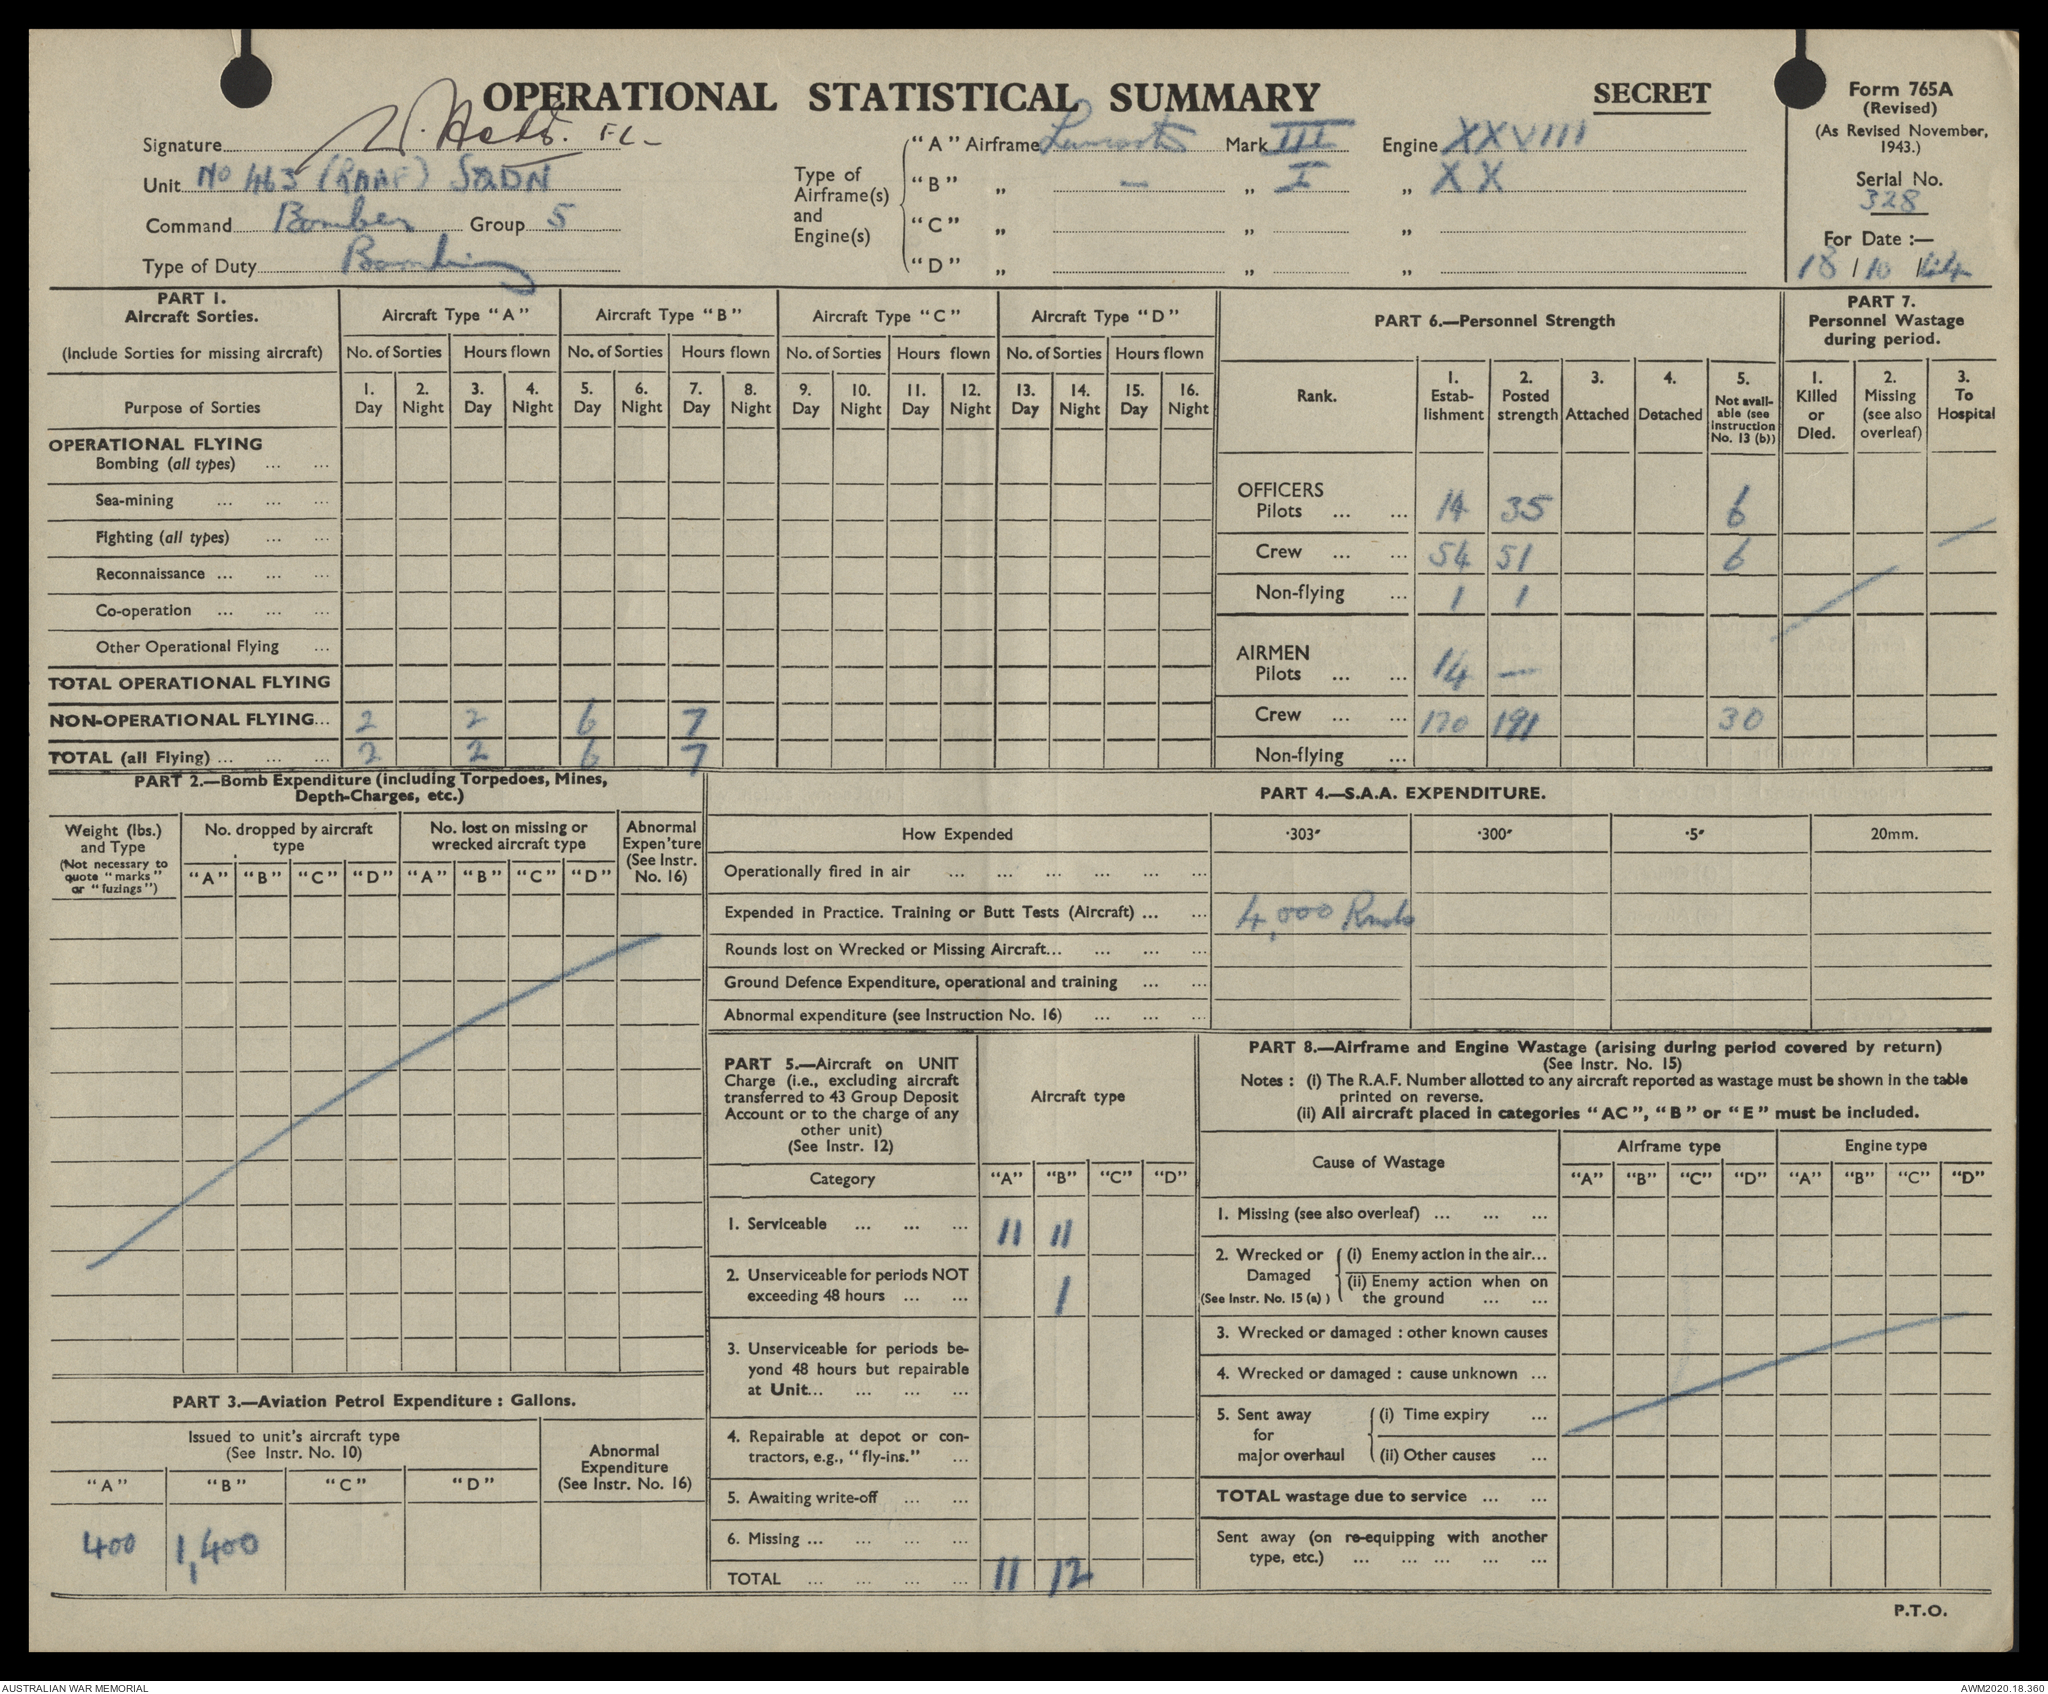 OPERATIONAL STATISTICAL SUMMARY
SECRET
Form 765A
(Revised)
(As Revised November,
1943.)
Serial No.
328
For Date :—
18 / 10 / 44
Signature
Unit No 463 (RAAF) SQDN
Command Bomber Group 5
Type of Duty Bombing
Type of
Airframe(s)
and
Engine(s)
"A" Airframe Lancaster Mark III Engine XXVIII
"B" „ — „ I „ XX
"C" „ „ „
"D" „ „ „
PART 1.
Aircraft Sorties.
(Include Sorties for missing aircraft)
Purpose of Sorties
Aircraft Type "A" Aircraft Type "B" Aircraft Type "C" Aircraft Type "D"
No. of Sorties Hours flown No. of Sorties Hours flown No. of Sorties Hours flown No. of Sorties Hours flown
1. 2. 3. 4. 5. 6. 7. 8. 9. 10. 11. 12. 13. 14. 15. 16.
Day Night Day Night Day Night Day Night Day Night Day Night Day Night Day Night
OPERATIONAL FLYING
Bombing (all types) ... ...
Sea-mining ... ... ...
Fighting (all types) ... ...
Reconnaissance ... ... ...
Co-operation ... ... ...
Other Operational Flying ...
TOTAL OPERATIONAL FLYING
NON-OPERATIONAL FLYING... 2 2 6 7
TOTAL (all Flying) ... ... ... 2 2 6 7
PART 6.—Personnel Strength
Rank.
1. Estab-lishment
2. Posted strength
3. Attached
4. Detached
5. Not avail-able (see Instruction No. 13 (b))
OFFICERS
Pilots ... ... 14 35 6
Crew ... ... 54 51 6
Non-flying ... 1 1
AIRMEN
Pilots ... ... 14 —
Crew ... ... 170 191 30
Non-flying ...
PART 7.
Personnel Wastage
during period.
1. Killed or Died.
2. Missing (see also overleaf)
3. To Hospital
PART 2.—Bomb Expenditure (including Torpedoes, Mines,
Depth-Charges, etc.)
Weight (lbs.)
and Type
(Not necessary to
quote "marks"
or "fuzings")
No. dropped by aircraft
type
No. lost on missing or
wrecked aircraft type
Abnormal
Expen'ture
(See Instr.
No. 16)
"A" "B" "C" "D" "A" "B" "C" "D"
PART 3.—Aviation Petrol Expenditure : Gallons.
Issued to unit's aircraft type
(See Instr. No. 10)
Abnormal
Expenditure
(See Instr. No. 16)
"A" "B" "C" "D"
400 1,400
PART 4.—S.A.A. EXPENDITURE.
How Expended ·303" ·300" ·5" 20mm.
Operationally fired in air ... ... ... ... ... ...
Expended in Practice. Training or Butt Tests (Aircraft) ... ... 4,000 Rnds
Rounds lost on Wrecked or Missing Aircraft... ... ... ...
Ground Defence Expenditure, operational and training ... ...
Abnormal expenditure (see Instruction No. 16) ... ... ...
PART 5.—Aircraft on UNIT
Charge (i.e., excluding aircraft
transferred to 43 Group Deposit
Account or to the charge of any
other unit)
(See Instr. 12)
Aircraft type
Category "A" "B" "C" "D"
1. Serviceable ... ... ... 11 11
2. Unserviceable for periods NOT
exceeding 48 hours ... ... 1
3. Unserviceable for periods be-
yond 48 hours but repairable
at Unit... ... ... ...
4. Repairable at depot or con-
tractors, e.g., "fly-ins." ...
5. Awaiting write-off ... ...
6. Missing ... ... ... ...
TOTAL ... ... ... ... 11 12
PART 8.—Airframe and Engine Wastage (arising during period covered by return)
(See Instr. No. 15)
Notes : (i) The R.A.F. Number allotted to any aircraft reported as wastage must be shown in the table
printed on reverse.
(ii) All aircraft placed in categories "AC", "B" or "E" must be included.
Cause of Wastage Airframe type Engine type
"A" "B" "C" "D" "A" "B" "C" "D"
1. Missing (see also overleaf) ... ... ...
2. Wrecked or Damaged (See Instr. No. 15 (a) )
(i) Enemy action in the air...
(ii) Enemy action when on
the ground ... ...
3. Wrecked or damaged : other known causes
4. Wrecked or damaged : cause unknown ...
5. Sent away for major overhaul
(i) Time expiry ...
(ii) Other causes ...
TOTAL wastage due to service ... ...
Sent away (on re-equipping with another
type, etc.) ... ... ... ... ...
P.T.O.
AUSTRALIAN WAR MEMORIAL
AWM2020.18.360